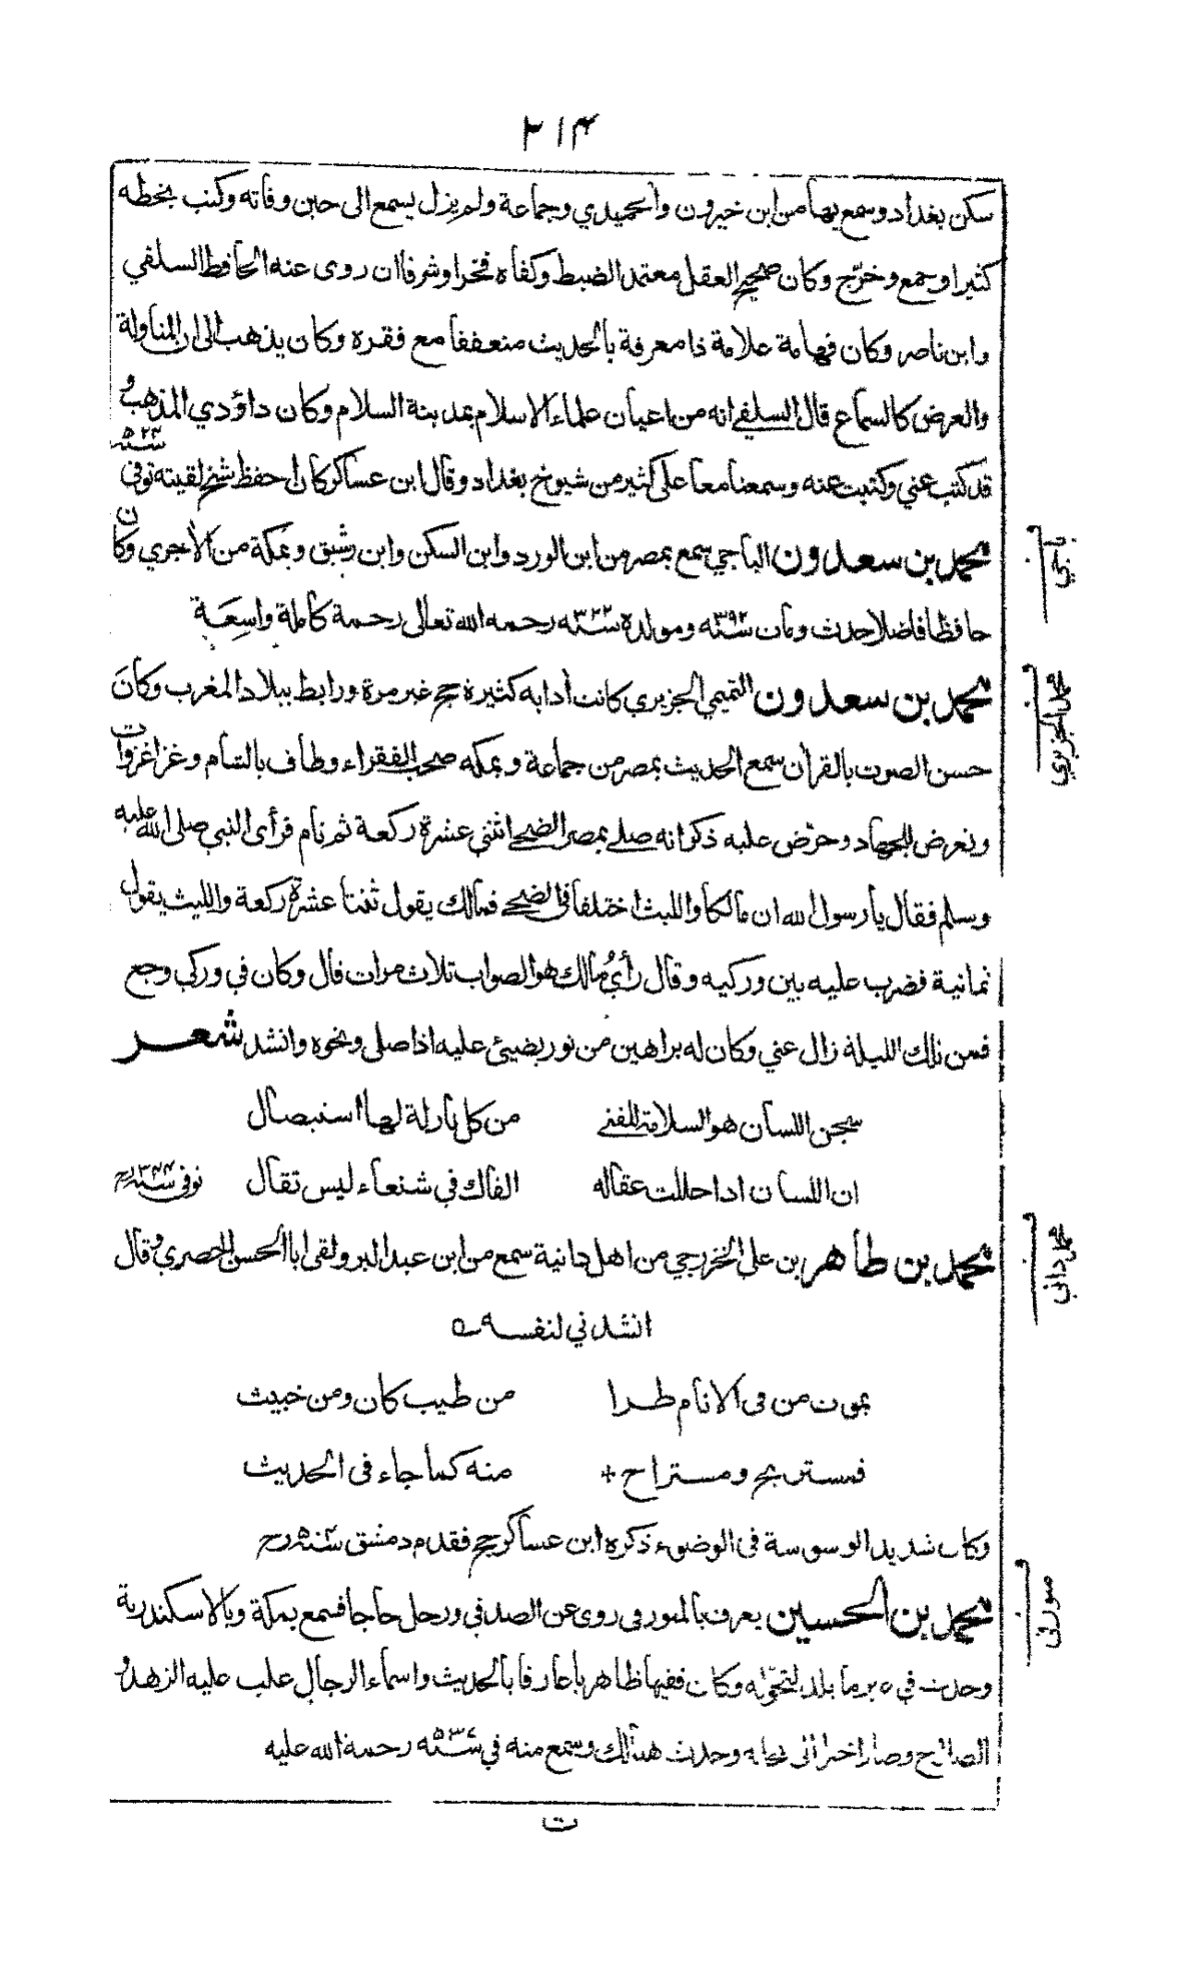 ٢١٤
سكن بغداد وسمع بها من ابن خيرون والحميدي وجماعة ولم يزل يسمع الى حين وفاته وكتب بخطه
كثيرا وجمع وخرّج وكان صحيح العقل معتمد الضبط وكفاه فخرا وشرفا ان روى عنه الحافظ السلفي
وابن ناصر وكان فهامة علامة ذا معرفة بالحديث متعففا مع فقره وكان يذهب الى ان المناولة
والعرض كالسماع قال السلفي انه من اعيان علماء الاسلام بمدينة السلام وكان داؤدي المذهب و
قد كتب عني وكتبت عنه وسمعنا معا على كثير من شيوخ بغداد وقال ابن عساكر كان احفظ شيخ لقيته توفي سنة ٥٢٣
محمد بن سعدون الباجي سمع بمصر من ابن الورد وابن السكن وابن رشيق وبمكة من الاجري وكان
حافظا فاضلا حدث ومات سنة ٣٩٢ ومولده سنة ٣٢٢ رحمه الله تعالى رحمة كاملة واسِعَة
محمد بن سعدون التميمي الجزيري كانت أدابه كثيرة حج غير مرة ورابط ببلاد المغرب وكانَ
حسن الصوت بالقرأن سمع الحديث بمصر من جماعة وبمكه صحب الفقراء وطاف بالشام وغزا غزوات
وتعرض للجهاد وحرّض عليه ذكر انه صلے بمصر الضحے اثنتي عشرة ركعة ثم نام فرأى النبي صلى الله عليه
وسلم فقال يا رسول الله ان مالكا والليث اختلفا في الضحے فمالك يقول ثنتا عشرة ركعة والليث يقول
ثمانية فضرب عليه بين وركيه وقال رأيُ مالك هو الصواب ثلاث مرات قال وكان في وركي وجع
فمن تلك الليلة زال عني وكان له براهين من نور يضيئ عليه اذا صلى ونحوه وانشد شعر
سجن اللسان هو السلامة للفتے من كل نازلة لها استيصال
ان اللسان اذا حللت عقاله القاك في شنعاء ليس تقال توفي سنة ٣٤٤ رح
محمد بن طاهر بن علي الخزرجي من اهل دانية سمع من ابن عبد البر ولقى ابا الحسن الحصري وقال
انشدني لنفسه ؎
يموت من في الانام طرا من طيب كان ومن خبيث
فمستريح ومستراح + منه كما جاء في الحديث
وكان شديد الوسوسة في الوضوء ذكره ابن عساكر حج فقدم دمشق
محمد بن الحسين يعرف بالميورقي روى عن الصدفي ورحل حاجا فسمع بمكة وبالاسكندرية
وحدث في بلد لتجوّله وكان فقيها ظاهريا عارفا بالحديث واسماء الرجال غلب عليه الزهد و
الصلاح وصار اخرا الى بجاية وحدث هنالك وسمع منه في سنة ٥٣٧ رحمة الله عليه
باجي
محمد الجزيري
محمد داني
ت